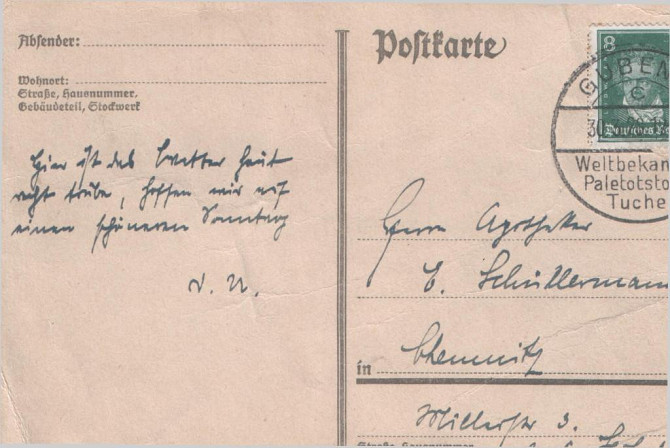 Absender:
Wohnort:
Straße, Hausnummer,
Gebäudeteil, Stockwerk
Hier ist das Wetter heut
recht trübe, hoffen wir auf
einen schöneren Sonntag
Postkarte
8
Deutsches Re
GUBEN
C
30.
Weltbekan
Paletotsto
Tuche
Herrn Apotheker
E. Schüllermann
in Chemnitz
Straße, Hausnummer